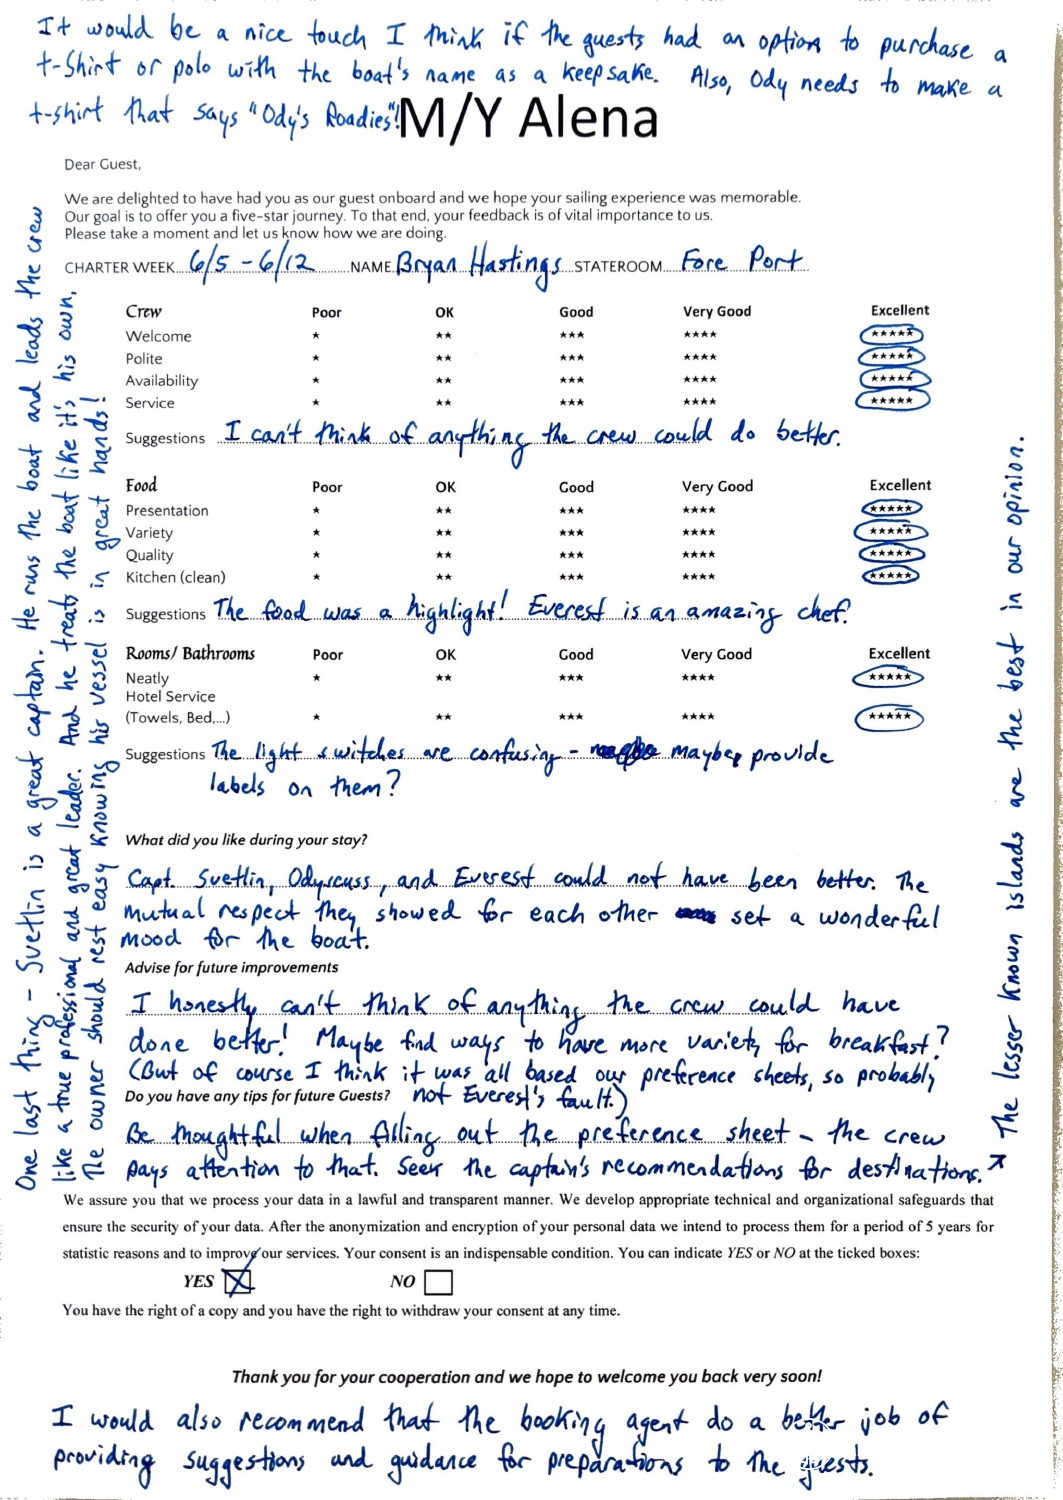 It would be a nice touch I think if the guests had an option to purchase a
t-shirt or polo with the boat's name as a keepsake. Also, Ody needs to make a
t-shirt that says "Ody's Roadies"!
M/Y Alena
Dear Guest,
We are delighted to have had you as our guest onboard and we hope your sailing experience was memorable.
Our goal is to offer you a five-star journey. To that end, your feedback is of vital importance to us.
Please take a moment and let us know how we are doing.
CHARTER WEEK 6/5 - 6/12 NAME Bryan Hastings STATEROOM Fore Port
Crew Poor OK Good Very Good Excellent
Welcome ★ ★★ ★★★ ★★★★ ★★★★★
Polite ★ ★★ ★★★ ★★★★ ★★★★★
Availability ★ ★★ ★★★ ★★★★ ★★★★★
Service ★ ★★ ★★★ ★★★★ ★★★★★
Suggestions I can't think of anything the crew could do better.
Food Poor OK Good Very Good Excellent
Presentation ★ ★★ ★★★ ★★★★ ★★★★★
Variety ★ ★★ ★★★ ★★★★ ★★★★★
Quality ★ ★★ ★★★ ★★★★ ★★★★★
Kitchen (clean) ★ ★★ ★★★ ★★★★ ★★★★★
Suggestions The food was a highlight! Everest is an amazing chef.
Rooms/ Bathrooms Poor OK Good Very Good Excellent
Neatly ★ ★★ ★★★ ★★★★ ★★★★★
Hotel Service
(Towels, Bed,...) ★ ★★ ★★★ ★★★★ ★★★★★
Suggestions The light switches are confusing - maybe provide
labels on them?
What did you like during your stay?
Capt. Svetlin, Odyscuss, and Everest could not have been better. The
mutual respect they showed for each other set a wonderful
mood for the boat.
Advise for future improvements
I honestly can't think of anything the crew could have
done better! Maybe find ways to have more variety for breakfast?
(But of course I think it was all based our preference sheets, so probably
not Everest's fault.)
Do you have any tips for future Guests?
Be thoughtful when filling out the preference sheet - the crew
pays attention to that. Seek the captain's recommendations for destinations.
The lesser known islands are the best in our opinion.
One last thing - Svetlin is a great captain. He runs the boat and leads the crew
like a true professional and great leader. And he treats the boat like it's his own.
The owner should rest easy knowing his vessel is in great hands!
We assure you that we process your data in a lawful and transparent manner. We develop appropriate technical and organizational safeguards that
ensure the security of your data. After the anonymization and encryption of your personal data we intend to process them for a period of 5 years for
statistic reasons and to improve our services. Your consent is an indispensable condition. You can indicate YES or NO at the ticked boxes:
YES ☒ NO ☐
You have the right of a copy and you have the right to withdraw your consent at any time.
Thank you for your cooperation and we hope to welcome you back very soon!
I would also recommend that the booking agent do a better job of
providing suggestions and guidance for preparations to the guests.